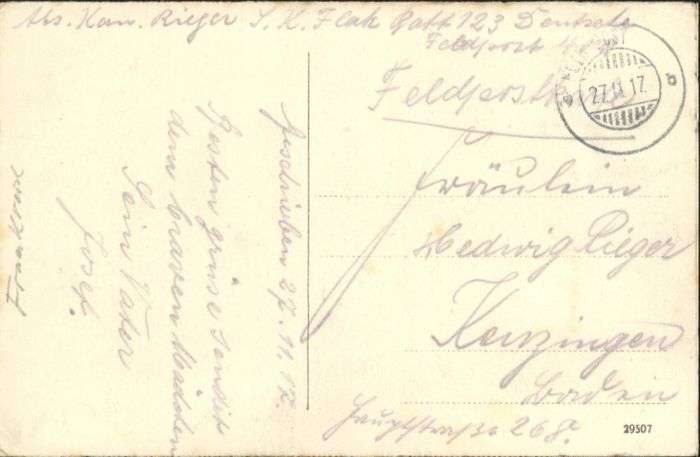 Abs. Kan. Rieger S. K. Flak Batt 123 Deutsche
Feldpost
27.11.17.
b
Feldpostkarte
Fräulein
Hedwig Rieger
Kenzingen
Baden
Hauptstraße 268.
29507
Geschrieben 27. 11. 17.
Besten Grüse sendet
dem braven Mädchen
Dein Vater
Josef.